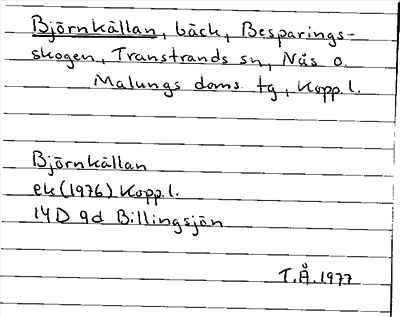 Björnkällan, bäck, Besparings-
skogen, Transtrands sn, Nås o.
Malungs doms. tg, Kopp. l.
Björnkällan
ek (1976) Kopp. l.
14D 9d Billingsjön
T.Å. 1977